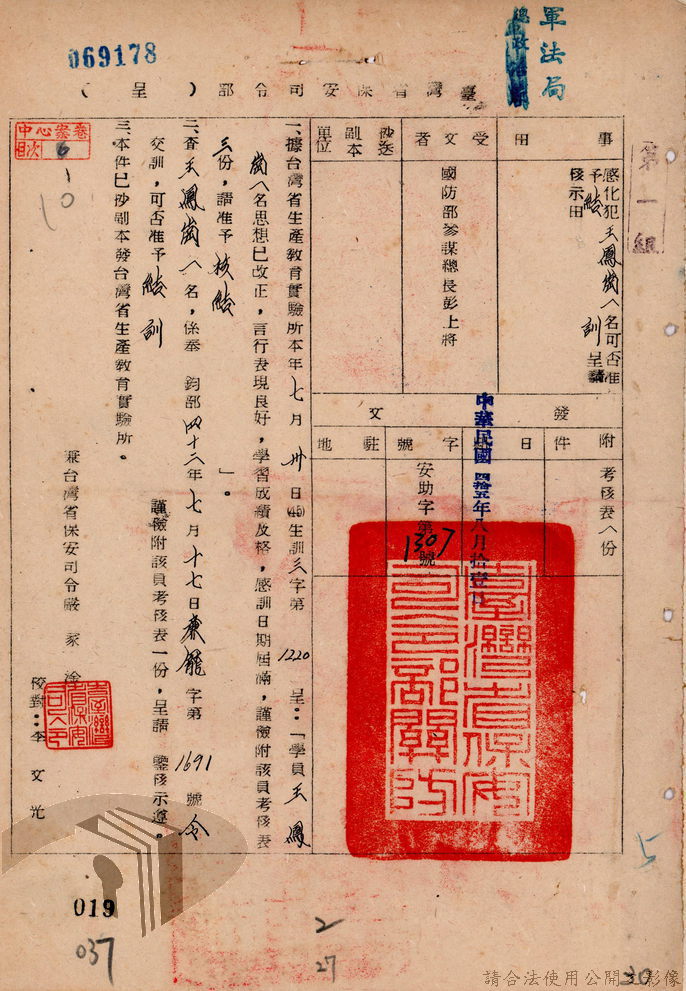 069178
軍法局
總政治部
臺灣省保安司令部(呈)
第一組
事由
感化犯王鳳崗一名可否准
予結訓呈請
核示由
受文者
國防部參謀總長彭上將
抄送副本單位
發文
附件
考核表一份
日期
中華民國肆拾五年八月拾壹日
字號
安助字第1307號
駐地
臺灣省保安司令部關防
一、據台灣省生產教育實驗所本年七月卅日(45)生訓三字第1220呈：「學員王鳳
崗一名思想已改正，言行表現良好，學習成績及格，感訓日期屆滿，謹檢附該員考核表
三份，請准予核結」。
二、查王鳳崗一名，係奉 鈞部四十二年七月十七日東龍字第1691號令
交訓，可否准予結訓 謹檢附該員考核表一份，呈請 鑒核示遵。
三、本件已抄副本發台灣省生產教育實驗所。
兼台灣省保安司令嚴家淦
校對：李文光
中心案卷
目次
6-10
5
019
037
2
27
30
請合法使用公開之影像